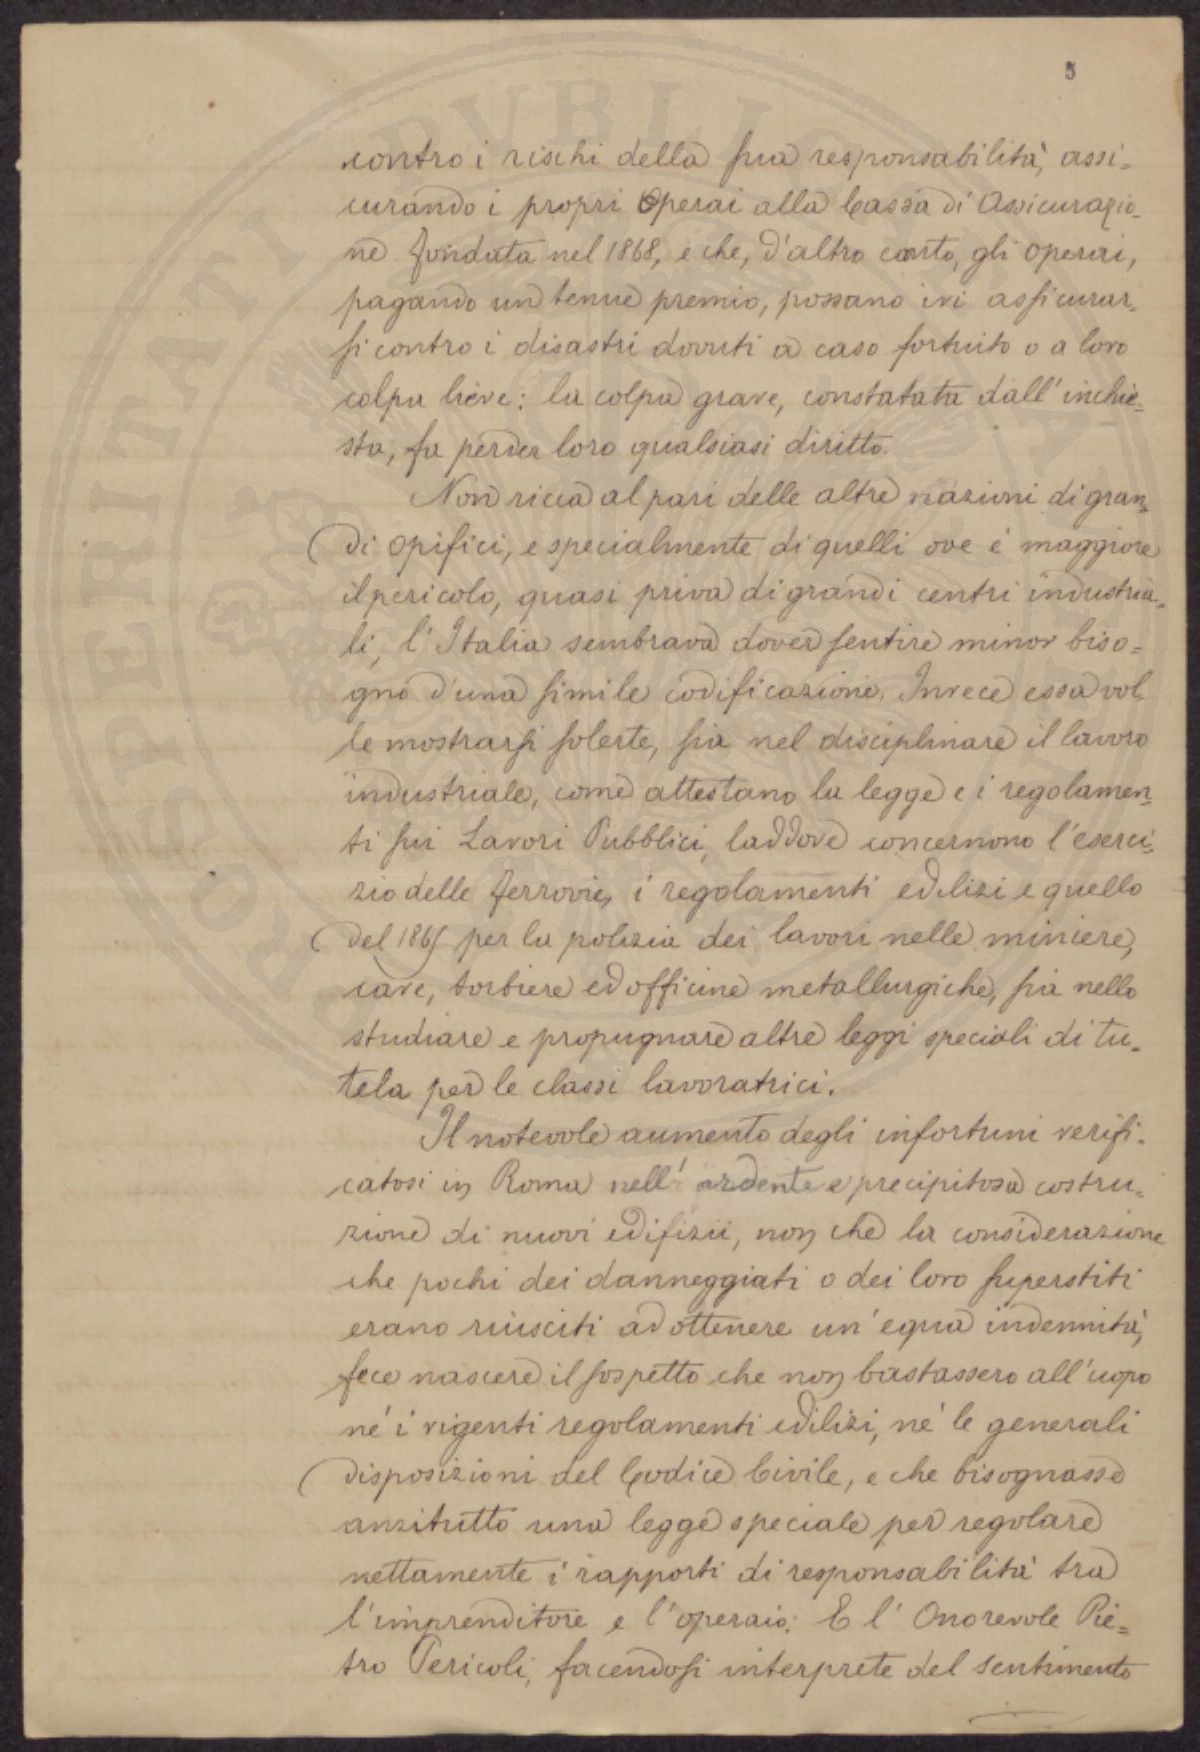 5
contro i rischi della sua responsabilità, assi=
curando i propri Operai alla Cassa di Assicurazio=
ne fondata nel 1868, e che, d'altro canto, gli operai,
pagando un tenue premio, possano ivi assicurar=
si contro i disastri dovuti a caso fortuito o a loro
colpa lieve: la colpa grave, constatata dall'inchie=
sta, fa perder loro qualsiasi diritto.
Non ricca al pari delle altre nazioni di gran=
di opifici, e specialmente di quelli ove è maggiore
il pericolo, quasi priva di grandi centri industria=
li, l'Italia sembrava dover sentire minor biso=
gno d'una simile codificazione. Invece essa vol
le mostrarsi solerte, sia nel disciplinare il lavoro
industriale, come attestano la legge e i regolamen=
ti sui Lavori Pubblici, laddove concernono l'eserci=
zio delle ferrovie, i regolamenti edilizi e quello
del 1865 per la polizia dei lavori nelle miniere,
cave, torbiere ed officine metallurgiche, sia nello
studiare e propugnare altre leggi speciali di tu=
tela per le classi lavoratrici.
Il notevole aumento degli infortuni verifi=
catosi in Roma nell'ardente e precipitosa costru=
zione di nuovi edifizii, non che la considerazione
che pochi dei danneggiati o dei loro superstiti
erano riusciti ad ottenere un'equa indennità,
fece nascere il sospetto che non bastassero all'uopo
nè i vigenti regolamenti edilizi, nè le generali
disposizioni del Codice Civile, e che bisognasse
anzitutto una legge speciale per regolare
nettamente i rapporti di responsabilità tra
l'imprenditore e l'operaio. E l'Onorevole Pie=
tro Pericoli, facendosi interprete del sentimento
PROSPERITATI PVBLICAE